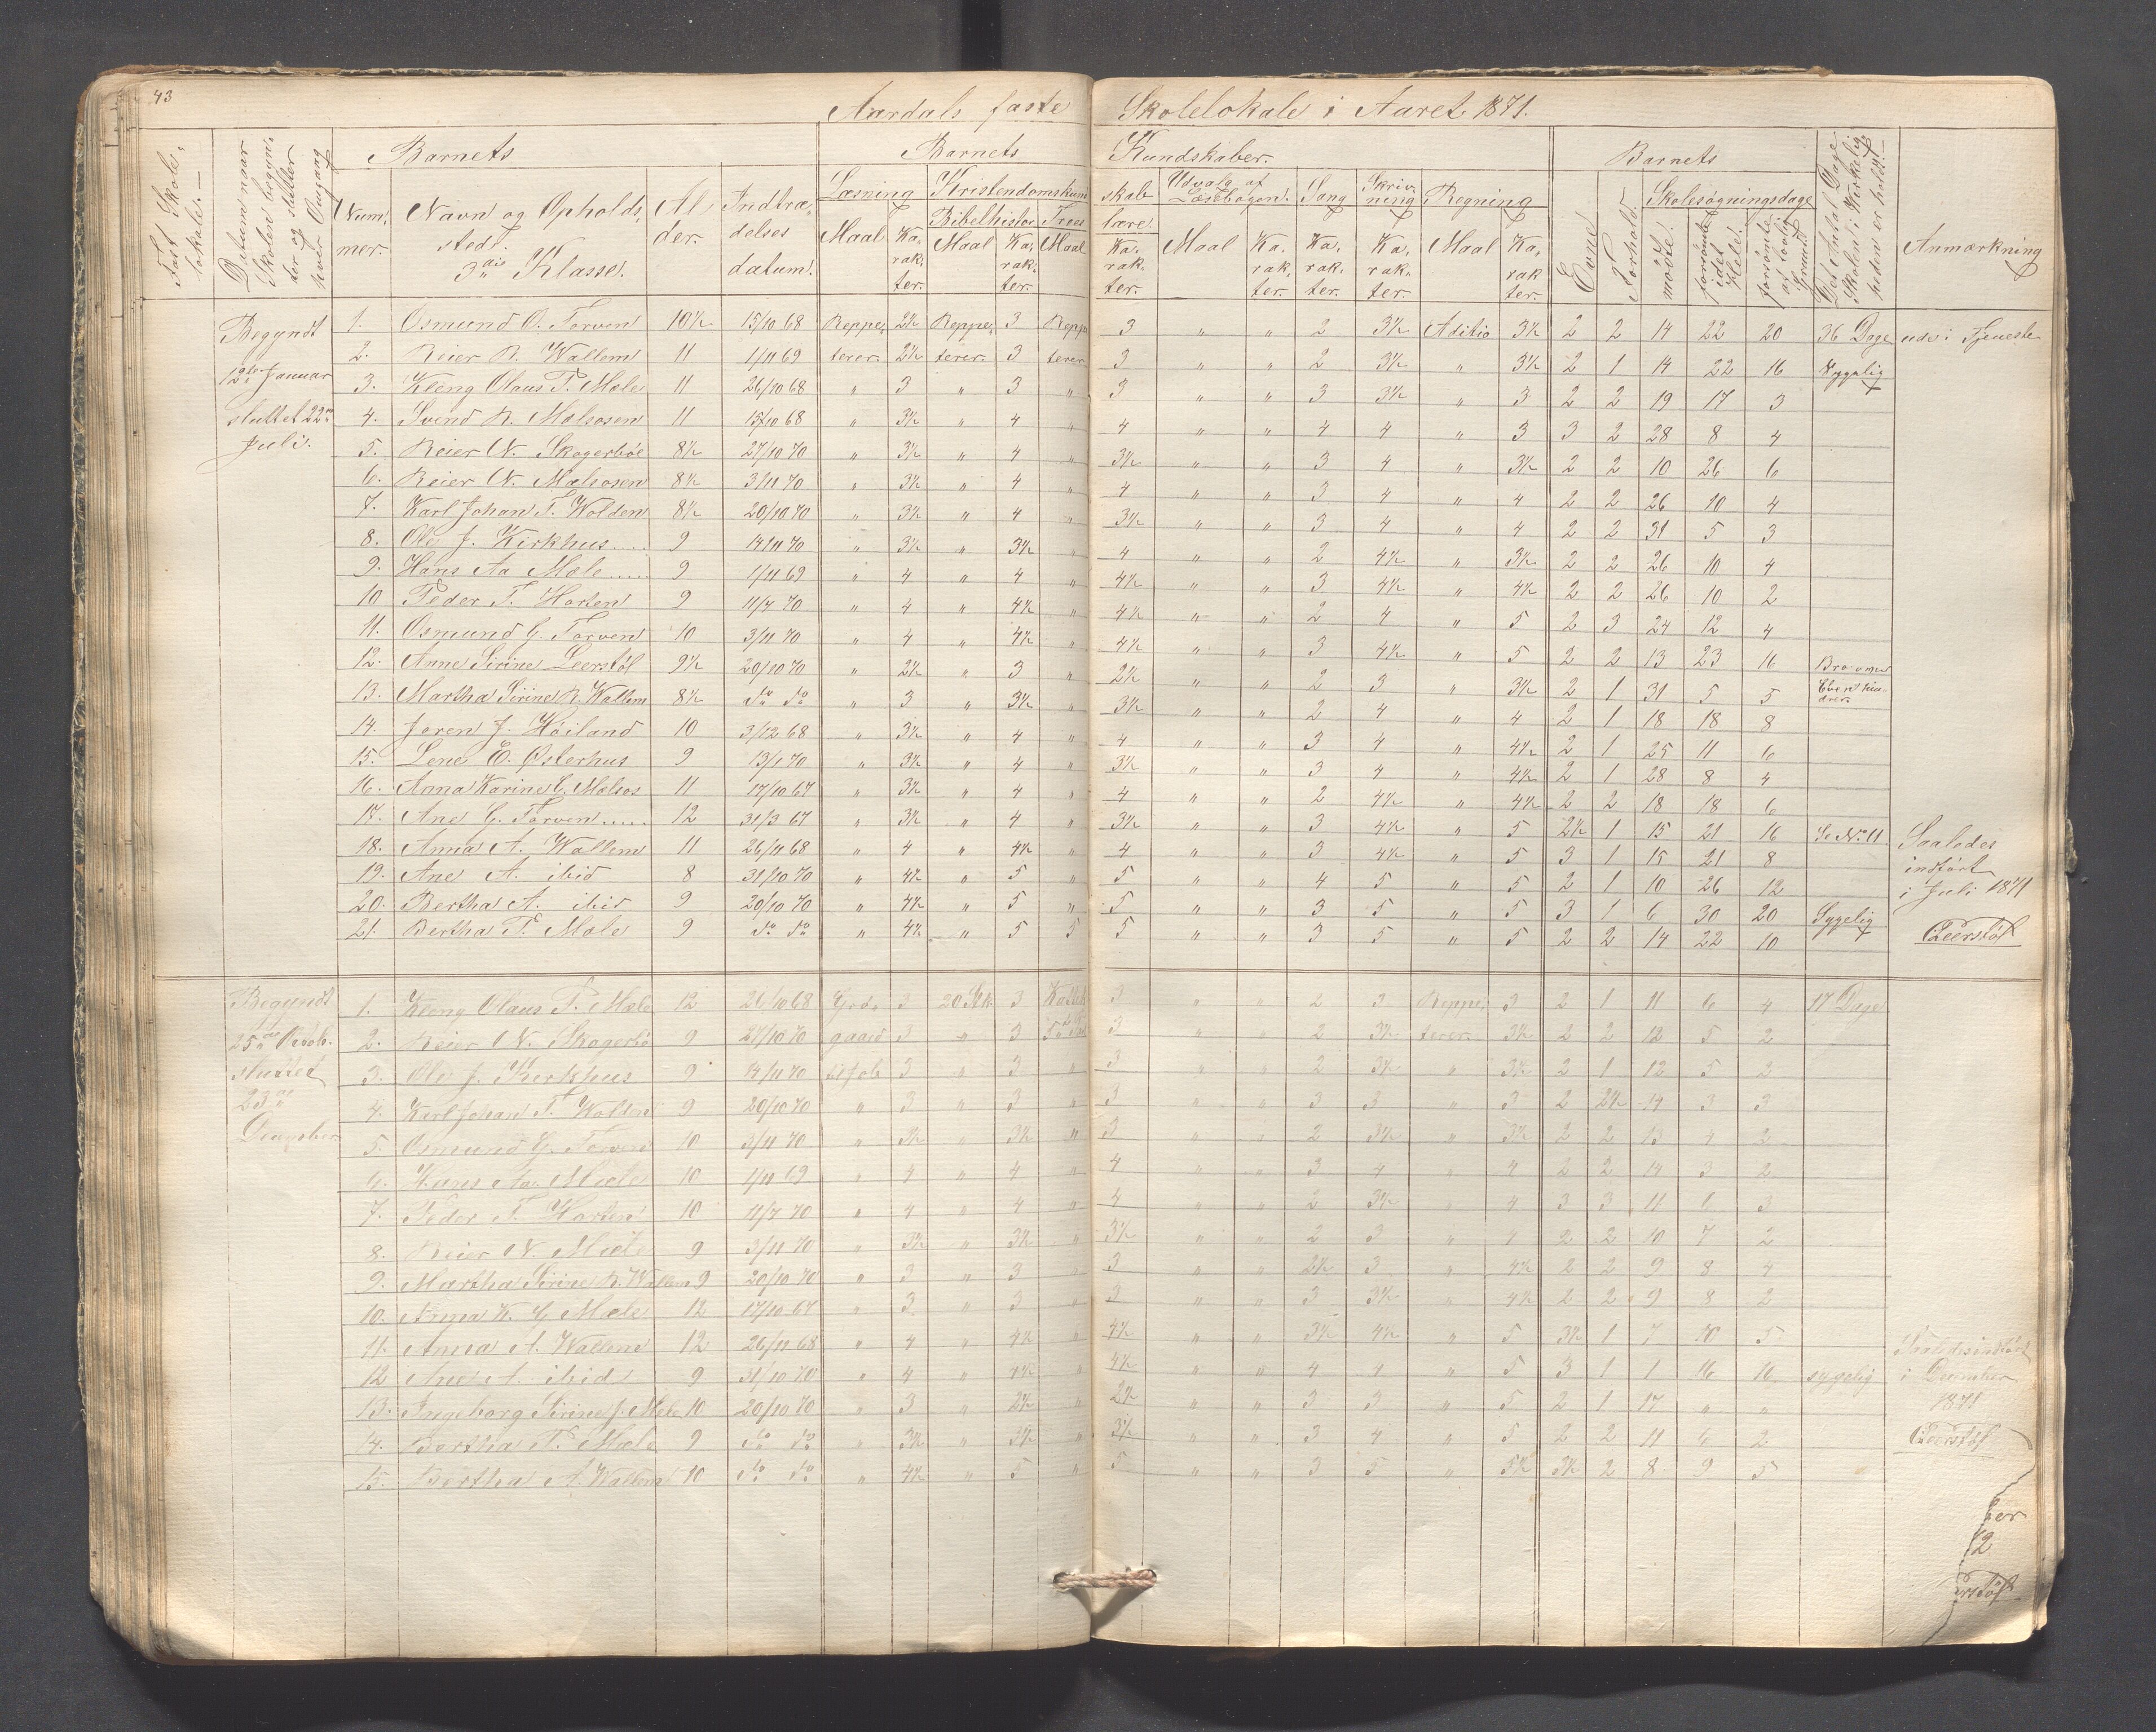 43
Aardals faste Skolelokale i Aaret 1871.
Fast Skolelokale.
Datum naar Skolen begynder og slutter hver Omgang
Barnets
Nummer.
Navn og Opholdssted.
3die Klasse.
Alder.
Indtrædelses datum.
Barnets Kundskaber.
Læsning
Maal
Karakter.
Kristendomskundskab
Bibelhistor
Maal
Karakter.
Troeslære.
Maal
Karakter.
Udvalg af Læsebogen.
Maal
Karakter.
Sang
Karakter.
Skrivning
Karakter.
Regning
Maal
Karakter.
Barnets
Evne
Forhold.
Skolesøgningsdage
mødte
forsømte i det Hele.
forsømte af lovlig Grund
Det Antal Dage Skolen i Virkeligheden er holdt.
Anmærkning
Begyndt
12te Januar
sluttet 22de
Juli.
1. Osmund O. Torven 10½ 15/10 68 Reppe, 2½ Reppe, 3 Reppe 3 " " 2 3½ Aditio 3½ 2 2 14 22 20 36 Dage ude i Tjeneste
2. Reier R. Wallem 11 1/11 69 terer. 2½ terer. 3 terer 3 " " 2 3½ " 3½ 2 1 14 22 16 Sygelig
3. Kleng Olaus T. Mæle 11 26/10 68 " 3 " 3 " 3 " " 3 3½ " 3 2 2 19 17 3
4. Svend R. Mælsosen 11 15/10 68 " 3½ " 4 " 4 " " 4 4 " 3 3 2 28 8 4
5. Reier N. Skogerbøe 8½ 27/10 70 " 3½ " 4 " 3½ " " 3 4 " 3½ 2 2 10 26 6
6. Reier N. Mælsosen 8½ 3/11 70 " 3½ " 4 " 4 " " 3 4 " 4 2 2 26 10 4
7. Karl Johan T. Wolden 8½ 20/10 70 " 3½ " 4 " 3½ " " 3 4 " 4 2 2 31 5 3
8. Ole J. Kirkhus 9 14/11 70 " 3½ " 3½ " 4 " " 2 4½ " 3½ 2 2 26 10 4
9. Hans Aa Mæle 9 1/11 69 " 4 " 4 " 4½ " " 3 4½ " 4½ 2 2 26 10 2
10 Peder T. Horten 9 11/7 70 " 4 " 4½ " 4½ " " 2 4 " 5 2 3 24 12 4
11. Osmund G. Torven 10 3/11 70 " 4 " 4½ " 4½ " " 3 4½ " 5 2 2 13 23 16 Bro over Elven hindrer.
12. Anne Sirine Leerstøl 9½ 20/10 70 " 2½ " 3 " 2½ " " 2 3 " 3½ 2 1 31 5 5
13. Martha Sirine R. Wallem 8½ do do " 3 " 3½ " 3½ " " 2 4 " 4 2 1 18 18 8
14. Joren J. Høiland 10 3/12 68 " 3½ " 4 " 4 " " 3 4 " 4½ 2 1 25 11 6
15. Lene E. Østerhus 9 13/1 70 " 3½ " 4 " 3½ " " 3 4 " 4½ 2 1 28 8 4
16. Anna Karine G. Mælsos 11 17/10 67 " 3½ " 4 " 4 " " 2 4½ " 4½ 2 2 18 18 6
17. Ane G. Torven 12 31/3 67 " 3½ " 4 " 3½ " " 3 4½ " 5 2½ 1 15 21 16 Se No 11
18. Anna A. Wallem 11 26/11 68 " 4 " 4½ " 4 " " 3 4½ " 5 3 1 15 21 8
19. Ane A. ibid 8 31/10 70 " 4½ " 5 " 5 " " 4 5 " 5 2 1 10 26 12
20. Bertha A. ibid 9 20/10 70 " 4½ " 5 " 5 " " 3 5 " 5 3 1 6 30 20 Sygelig
21. Bertha T. Mæle 9 do do " 4½ " 5 5 5 " " 3 5 " 5 2 2 14 22 10
Saaledes
indført
i Juli 1871
Leerstøl
Begyndt
25de Octob.
sluttet
23de
December
1. Kleng Olaus T. Mæle 12 26/10 68 Grø, 3 20 Stk 3 3 " " 2 3 Reppe, 3 2 1 11 6 4 17 Dage
2. Reier N. Skogerbø 9 27/10 70 gaard 3 " 3 3 " " 2 3½ terer. 3½ 2 2 12 5 2
3. Ole J. Kirkhus 9 14/11 70 3 " 3 " 3 " " 2 3½ " 3½ 2 1 12 5 2
4. Karl Johan T. Wolden 9 20/10 70 " 3 " 3 " 3 " " 3 3 " 3 2 2½ 14 3 3
5. Osmund G. Torven 10 3/11 70 " 3½ " 3½ " 3 " " 2 3½ " 3½ 2 2 13 4 2
6. Hans Aa. Mæle 10 1/11 69 " 4 " 4 " 4 " " 3 4 " 4 2 2 14 3 2
7. Peder T. Horten 10 11/7 70 " 4 " 4 " 4 " " 2 3½ " 4 3 3 11 6 3
8. Reier N. Mæle 9 3/11 70 " 3½ " 3½ " 3½ " " 2 3 " 4 2 2 10 7 2
9. Martha Sirine R. Wallem 9 20/10 70 " 3 " 3 " 3 " " 2½ 3 " 4½ 2 2 9 8 4
10. Anna K. G. Mæle 12 17/10 67 " 3 " 3 " 3 " " 3 3½ " 4½ 2 2 9 8 2
11. Anna A. Wallem 12 26/11 68 " 4 " 4½ " 4½ " " 3½ 4½ " 5 3½ 1 7 10 5
12 Ane A. ibid 9 31/10 70 " 4 " 4½ " 4½ " " 4 4 " 5 3 1 1 16 16 sygelig
13. Ingeborg Sirine J. Mæle 10 20/10 70 " 3 " 2½ " 2½ " " 3 3 " 5 2 1 17 " "
14. Bertha T. Mæle 9 do do " 3½ " 3½ " 3½ " " 3 4 " 5 2 2 11 6 2
15. Bertha A. Wallem 10 do do " 4½ " 5 " 5 " " 3 5 " 5½ 3½ 2 8 9 5
Saaledes indført
i December
1871
Leerstøl
ber
72
erstøl